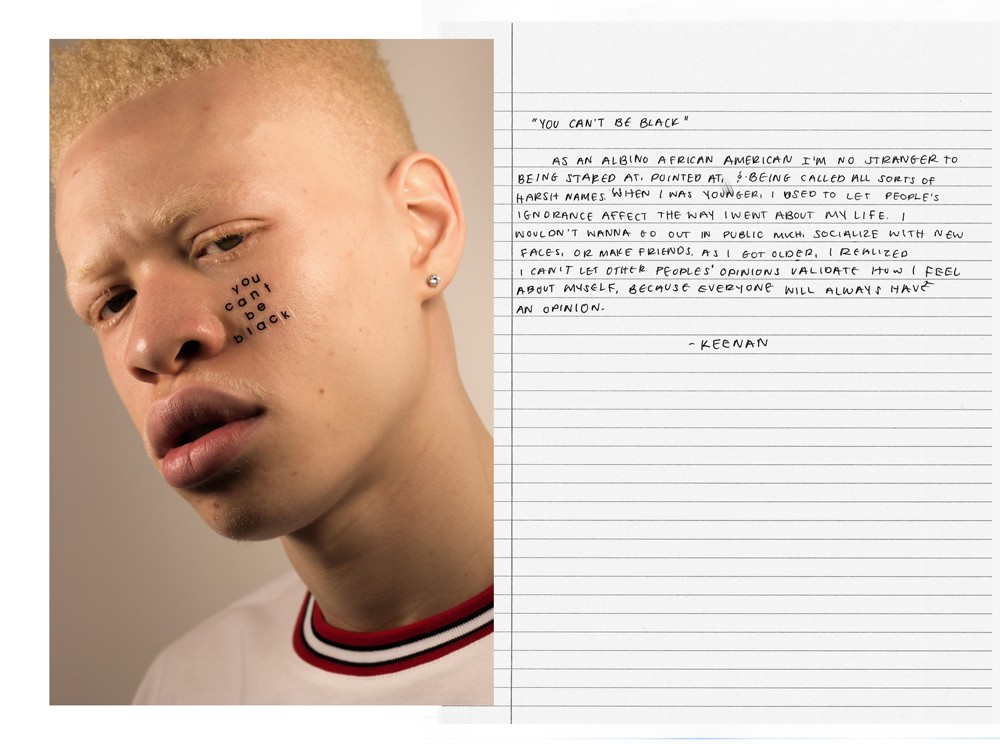 you
can't
be
black
"YOU CAN'T BE BLACK"
AS AN ALBINO AFRICAN AMERICAN I'M NO STRANGER TO
BEING STARED AT, POINTED AT, & BEING CALLED ALL SORTS OF
HARSH NAMES. WHEN I WAS YOUNGER, I USED TO LET PEOPLE'S
IGNORANCE AFFECT THE WAY I WENT ABOUT MY LIFE. I
WOULDN'T WANNA GO OUT IN PUBLIC MUCH, SOCIALIZE WITH NEW
FACES, OR MAKE FRIENDS. AS I GOT OLDER, I REALIZED
I CAN'T LET OTHER PEOPLES' OPINIONS VALIDATE HOW I FEEL
ABOUT MYSELF, BECAUSE EVERYONE WILL ALWAYS HAVE
AN OPINION.
- KEENAN